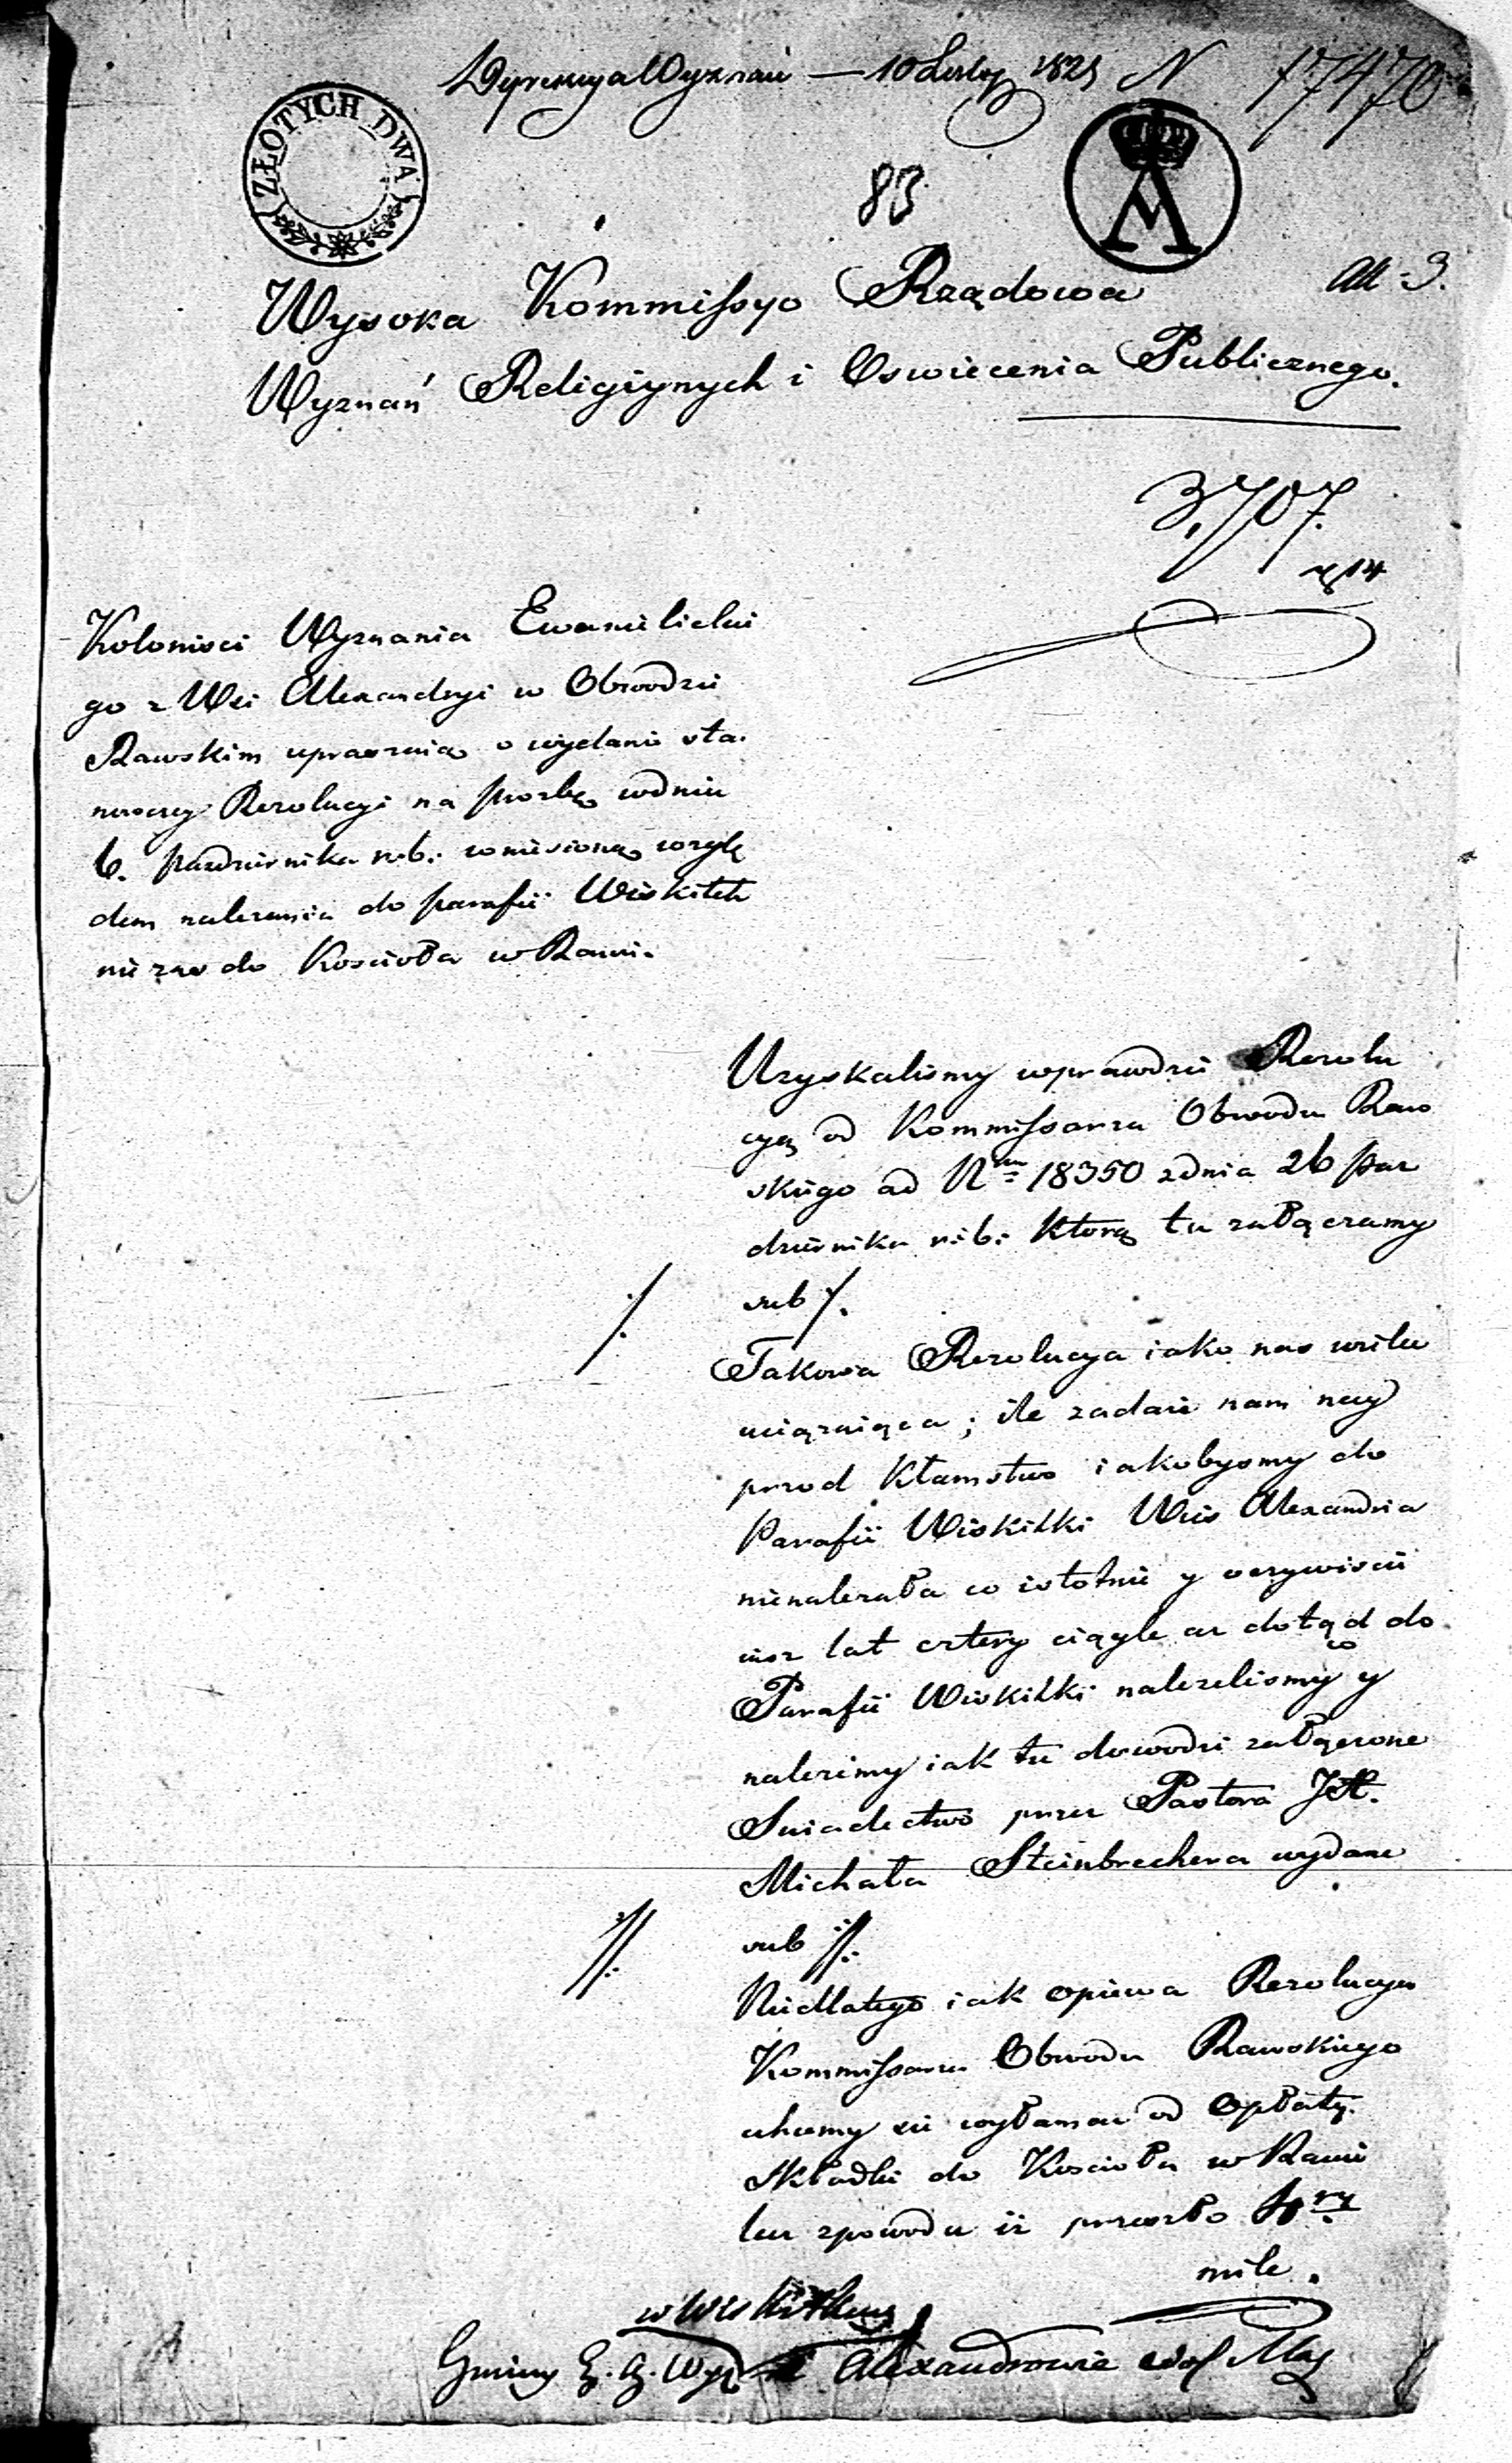 Dyrekcya Wyznań — 10 Listop 1825 N 17470
ZŁOTYCH DWA
83
A
Wysoka Kommissyo Rządowa
Wyznań Religiynych i Oswiecenia Publicznego.
3,707.
14
Kolonisci Wyznania Ewanielicki
go z Wsi Alexandryi w Obwodzie
Rawskim upraszaią o wydanie sta.
nowczey Rezolucyi na prozbę wdniu
6. pazdziernika r.b. wniesioną wzglę
dem należenia do parafii Wiskitek
nie zas do Koscioła w Rawie.
Uzyskalismy wprawdzie Rezolu
cyę od Kommissarza Obwodu Raw
skiego ad Nrm 18350 zdnia 26 paz
dziernika r.b. Którą tu załączamy
sub ./.
./.
Takowa Rezolucya iako nas wielu
uciążaiąca; ile zadaie nam nay
przod Kłamstwo iakobysmy do
Parafii Wiskitki Wies Alexandria
nienalezała co istotnie y oczywiscie
iusz lat cztery ciągle az dotąd do
Parafii Wiskitki nalezelismy y
co
nalezimy iak tu dowodzi załączone
Swiadectwo przez Pastora JX.
Michała Steinbrechera wydane
sub .//.
.//.
Niedlatego iak opiewa Rezolucya
Kommissarza Obwodu Rawskiego
chcemy sie wyłamac od Opłaty.
Składki do Koscioła w Rawie
lecz zpowodu iż przeszło 4ry
mile.
w Wiskitkach
Gminy E. A. Wyz Alexandrowie